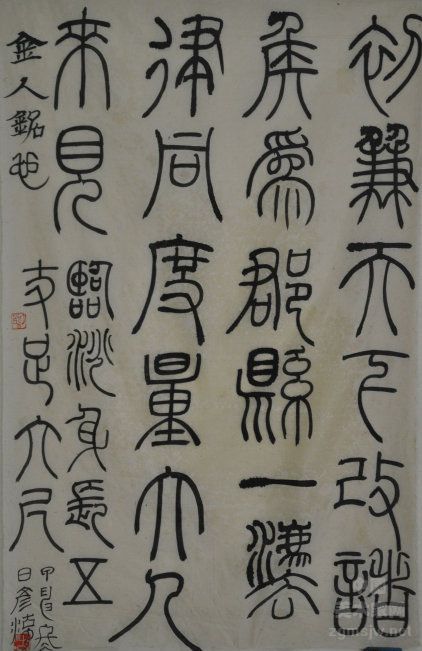 初兼天下改諸
侯爲郡縣一灋
律同度量大人
來見臨洮身長五
丈足六尺
金人銘也
甲冬
日彥